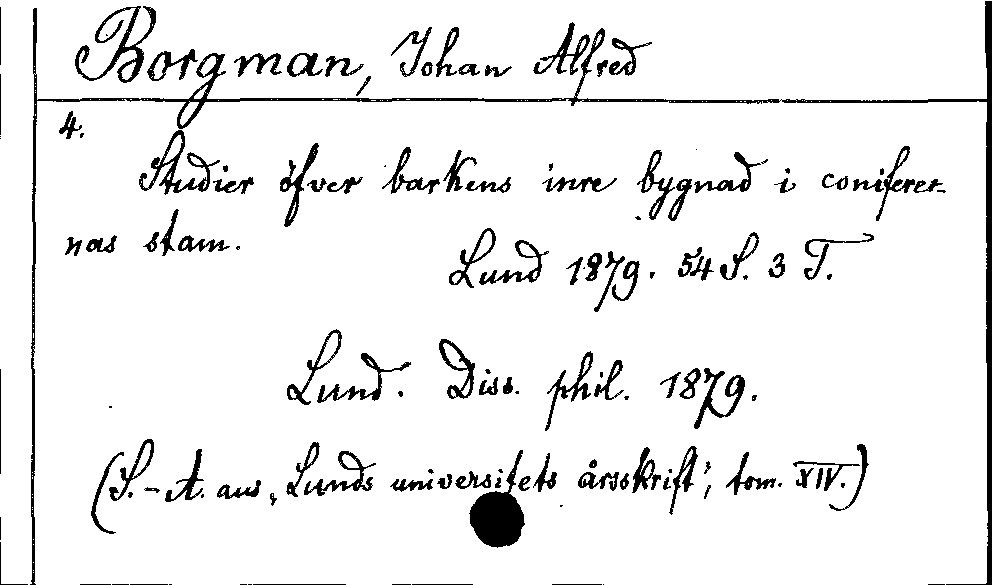 Borgman, Johan Alfred
4.
Studier öfver barkens inre bygnad i coniferer-
nas stam.
Lund 1879. 54 S. 3 T.
Lund. Diss. phil. 1879.
(S.-A. aus „Lunds universitets årsskrift“, tom. XIV.)